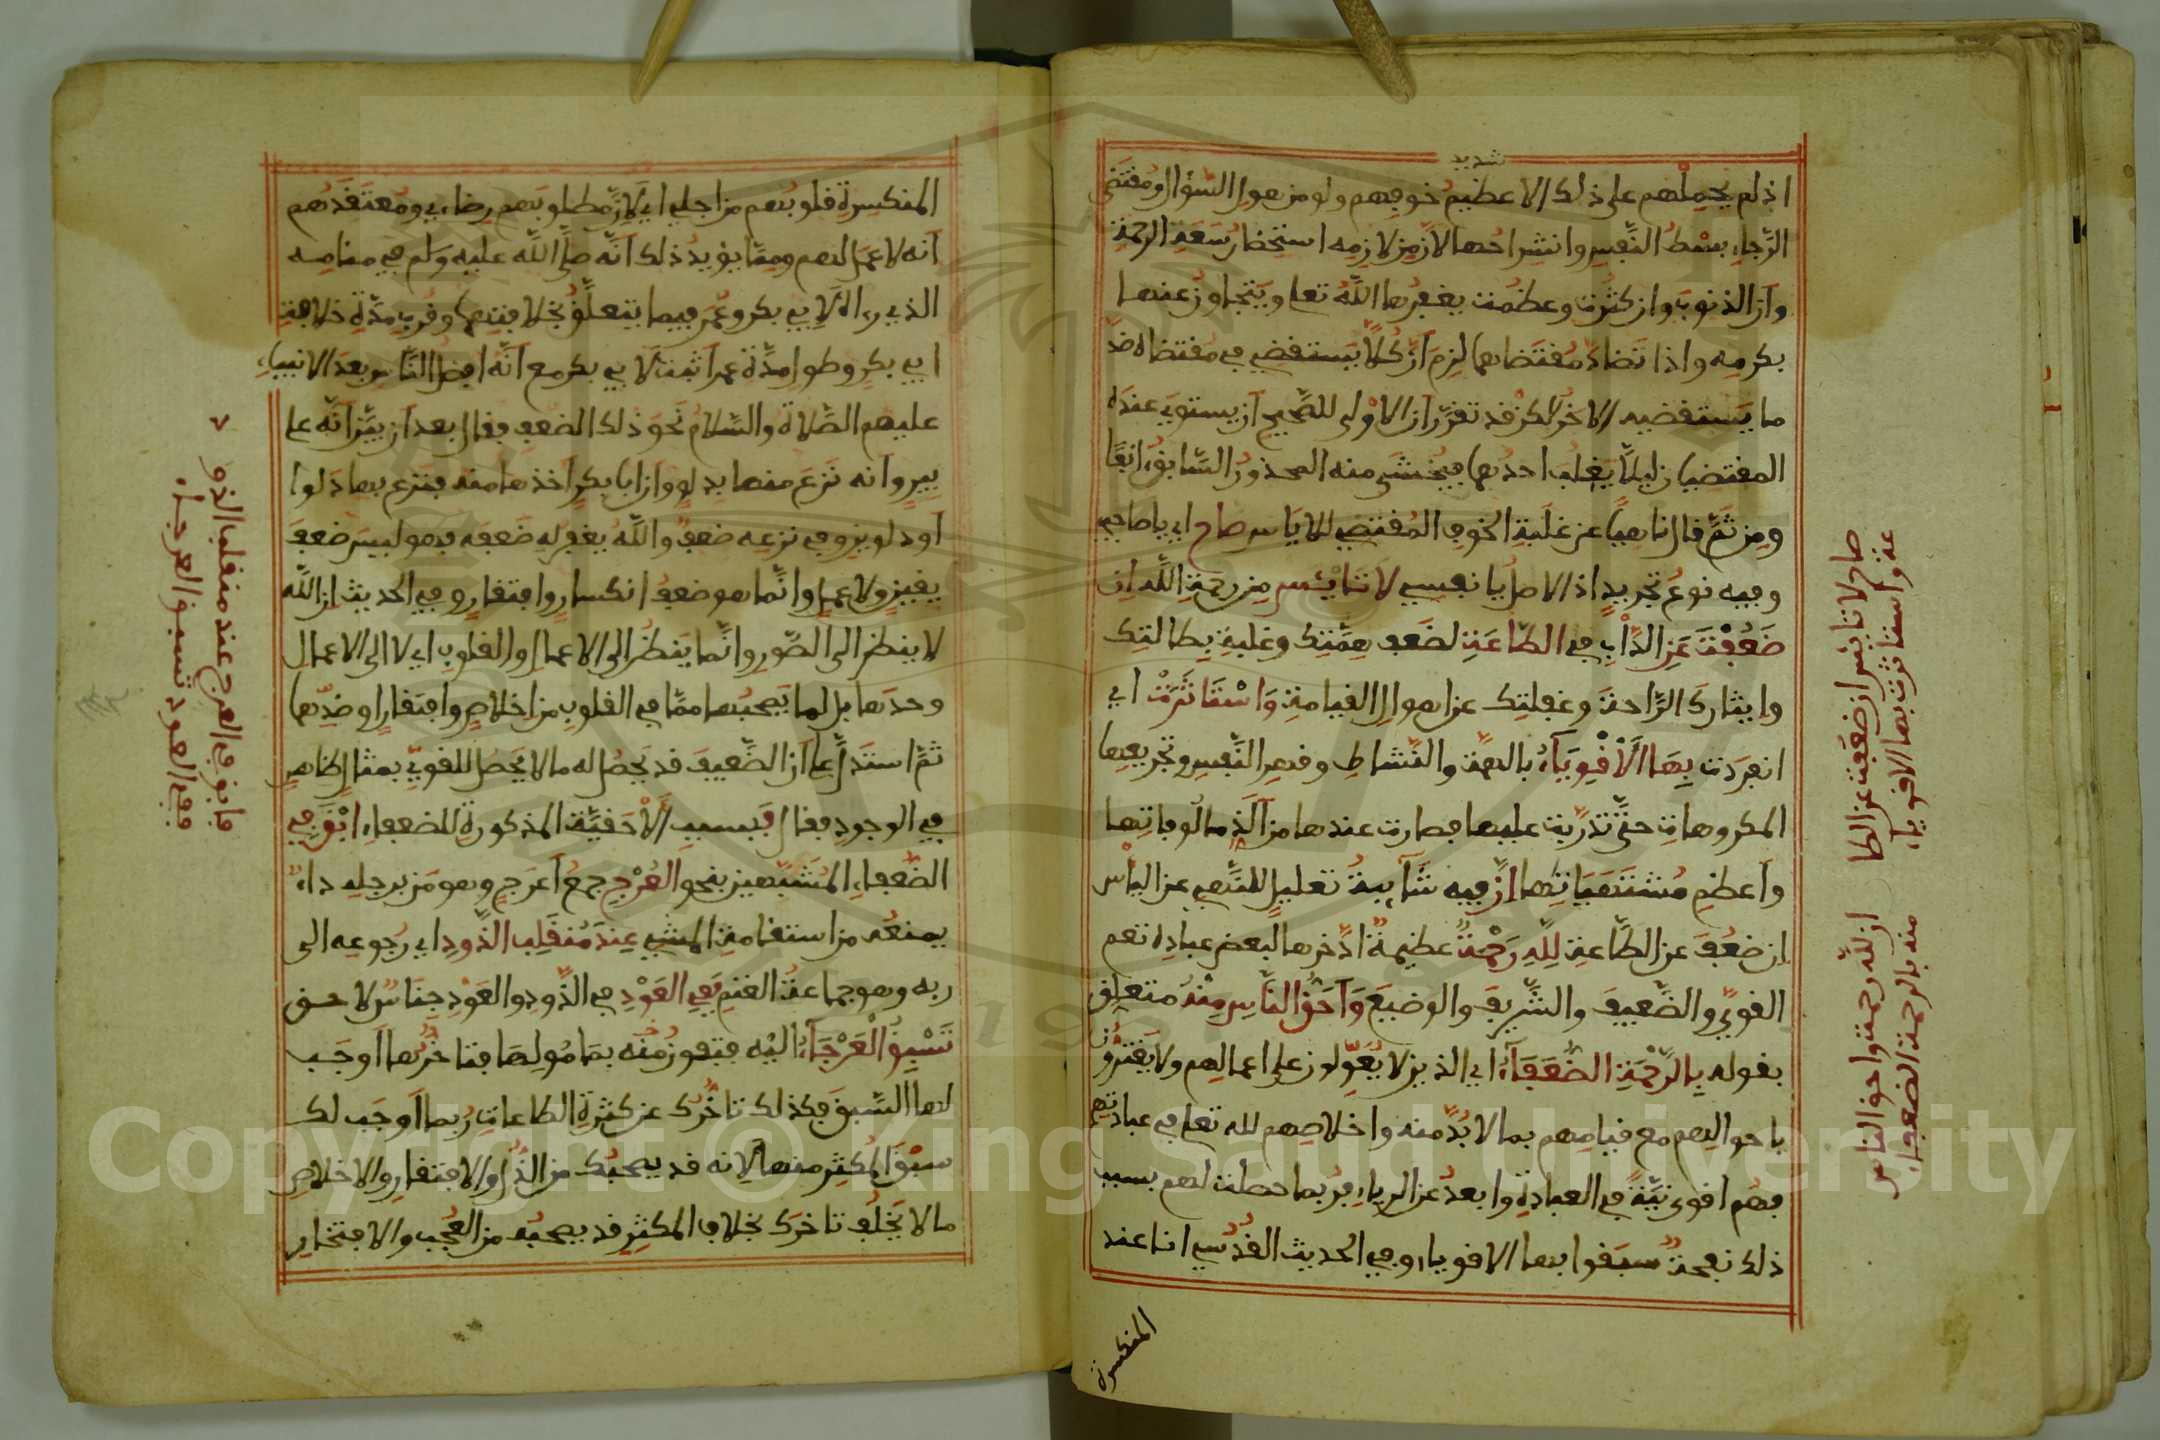 شديد
اذ لم يحملهم على ذلك الا عظيم خوفهم ولو من هول السؤال ومقتضى
الرجاء بسط النفس وانشراحها لان من لازمه استحضار سعة الرحمة
وان الذنوب وان كثرت وعظمت يغفرها الله تعالى ويتجاوز عنها
بكرمه واذا تضاد مقتضاهما لزم ان كلا يستقضى في مقتضاه ضد
ما يستقضيه الاخر لكن قد تقرر ان الاولى للصحيح ان يستوي عنده
المقتضيان ليلا يغلب احدهما فيخشى منه المحذور السابق انفا
ومن ثم قال ناهيا عن غلبة الخوف المقتضي للاياس صاح اي يا صاحبي
وفيه نوع تجريد اذ الاصل يا نفسي لا تايئس من رحمة الله ان
ضعفت عن الداب في الطاعة لضعف همتك وغلبة بطالتك
وايثارك الراحة وغفلتك عن اهوال القيامة واستاثرت اي
انفردت بها الاقوياء بالهمة والنشاط وقهر النفس وتجريعها
المكروهات حتى تدربت عليها فصارت عندها من الذ مالوفاتها
واعظم مشتهياتها ان فيه شايبة تعليل للنهي عن الياس
ان ضعف عن الطاعة لله رحمة عظيمة ادخرها لبعض عباده تعم
القوي والضعيف والشريف والوضيع واحق الناس منه متعلق
بقوله بالرحمة الضعفاء اي الذين لا يعولون على اعمالهم ولا يغترون
باحوالهم مع قيامهم بما لا بد منه واخلاصهم لله تعالى في عبادتهم
فهم اقوى نية في العبادة وابعد عن الرياء فربما حصلت لهم بسبب
ذلك نفحة سبقوا بها الاقوياء وفي الحديث القدسي انا عند
المنكسرة
صاح لا تايس ان ضعفت عن الطا
عة واستاثرت بها الاقوياء
ان لله رحمة واحق الناس
منه بالرحمة الضعفاء
المنكسرة قلوبهم من اجلي اي لان مطلوبهم رضاءي ومعتقدهم
انه لا عمل لهم ومما يؤيد ذلك انه صلى الله عليه وسلم في منامه
الذي رءاه لابي بكر وعمر فيما يتعلق بخلافتهما وقرب مدة خلافة
ابي بكر وطول مدة عمر اثبت لابي بكر مع انه افضل الناس بعد الانبياء
عليهم الصلاة والسلام نحو ذلك الضعف فقال بعد ان بين انه على
بير وانه نزع منها بدلو وان ابا بكر اخذها منه فنزع بها دلوا
او دلوين وفي نزعه ضعف والله يغفر له ضعفه فهو ليس ضعف
يقين ولا عمل وانما هو ضعف انكسار وافتقار وفي الحديث ان الله
لا ينظر الى الصور وانما ينظر الى الاعمال والقلوب اي لا الى الاعمال
وحدها بل لما يصحبها مما في القلوب من اخلاص وافتقار او ضدهما
ثم استدل على ان الضعيف قد يحصل له ما لا يحصل للقوي بمثال ظاهر
في الوجود فقال فبسبب الاحقية المذكورة للضعفاء ابق في
الضعفاء المشبهين بنحو العرج جمع اعرج وهو من برجله داء
يمنعه من استقامة المشي عند منقلب الذود اي رجوعه الى
ربه وهو جماعة الغنم ففي العود في الذود والعود جناس لاحق
تسبق العرجاء اليه فتفوز منه بمامولها فتاخرها اوجب
لها السبق فكذلك تاخرك عن كثرة الطاعات ربما اوجب لك
سبق المكثر منها لانه قد يصحبك من الذل والافتقار والاخلاص
ما لا يخلف تاخرك بخلاف المكثر قد يصحبه من العجب والافتخار
فابق في العرج عند منقلب الذو د
ففي العود تسبق العرجاء
Copyright © King Saud University
1957